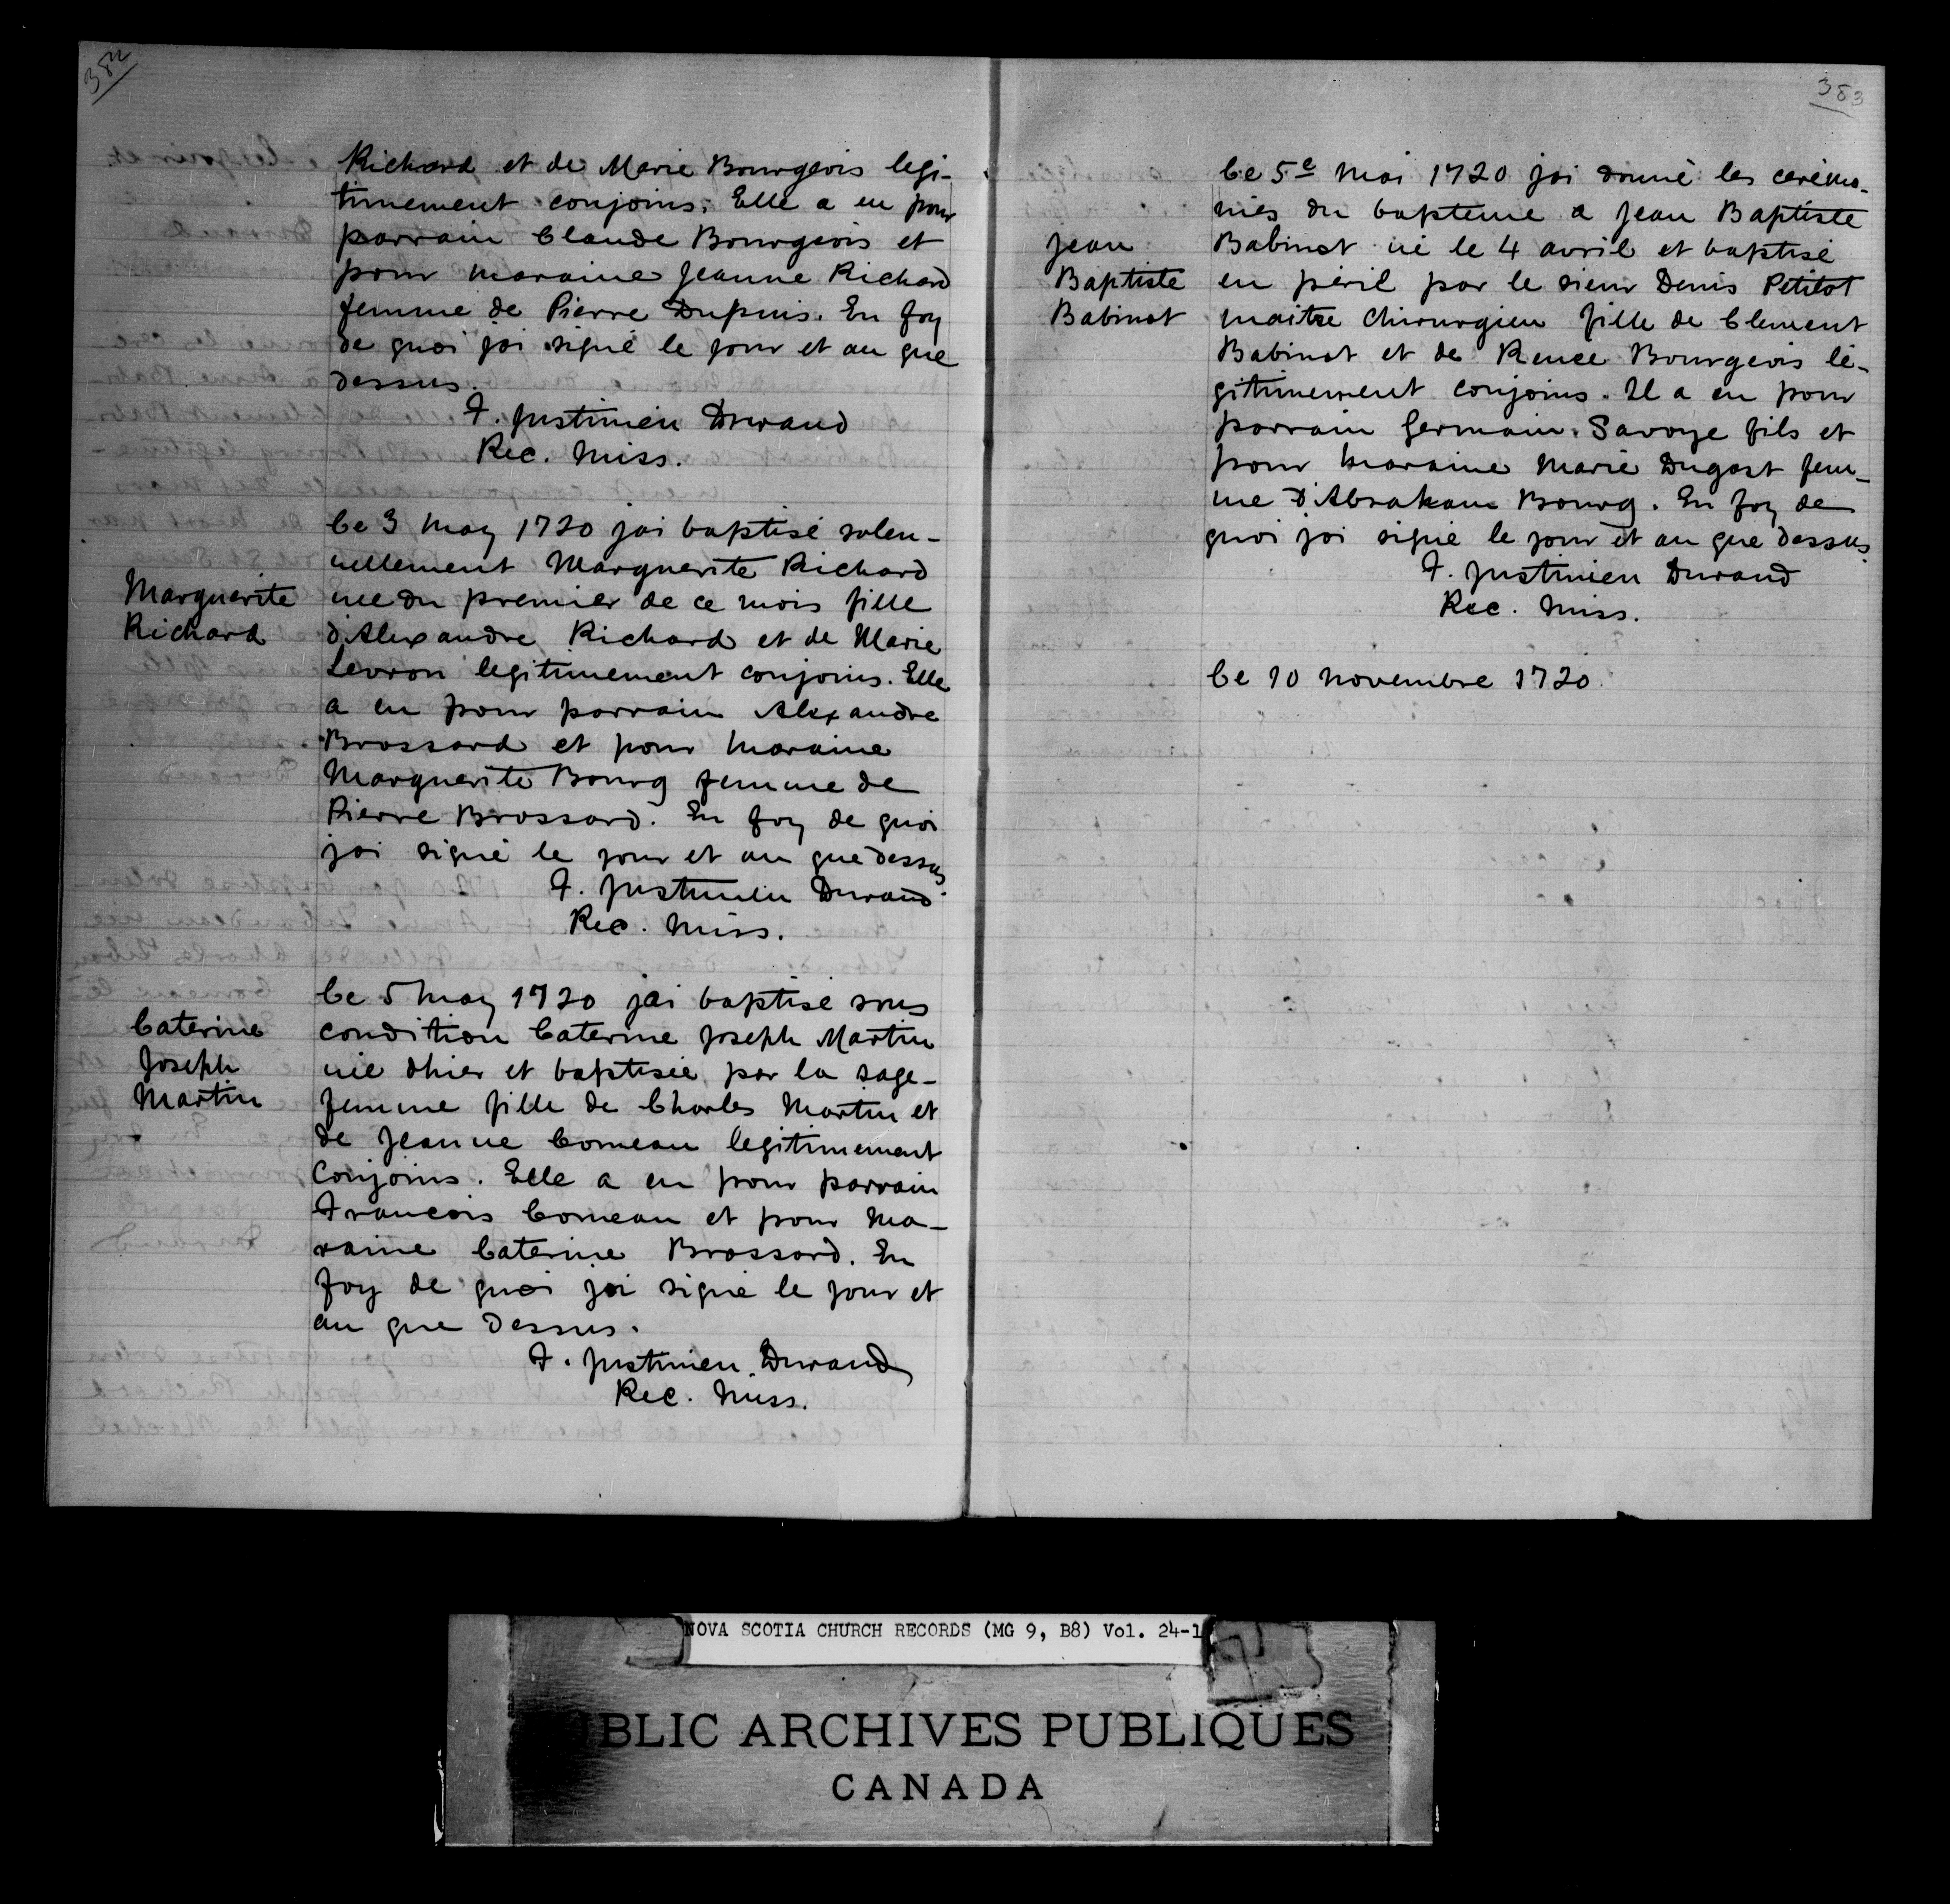 382
Richard et de Marie Bourgeois legi-
timement conjoins. Elle a eu pour
parrain Claude Bourgeois et
pour maraine Jeanne Richard
femme de Pierre Dupuis. En foy
de quoi jai signé le jour et an que
dessus.
F. Justinien Durand
Rec. Miss.
Marguerite
Richard
Ce 3 may 1720 jai baptisé solen-
nellement Marguerite Richard
née du premier de ce mois fille
d'Alexandre Richard et de Marie
Levron legitimement conjoins. Elle
a eu pour parrain Alexandre
Brossard et pour maraine
Marguerite Bourg femme de
Pierre Brossard. En foy de quoi
jai signé le jour et an que dessus.
F. Justinien Durand
Rec. Miss.
Caterine
Joseph
Martin
Ce 5 may 1720 jai baptisé sous
condition Caterine Joseph Martin
née dhier et baptisée par la sage-
femme fille de Charles Martin et
de Jeanne Comeau legitimement
conjoins. Elle a eu pour parrain
Francois Comeau et pour ma-
raine Caterine Brossard. En
foy de quoi jai signé le jour et
an que dessus.
F. Justinien Durand
Rec. Miss.
383
Jean
Baptiste
Babinot
Ce 5e mai 1720 jai donné les cerémo-
nies du bapteme a Jean Baptiste
Babinot né le 4 avril et baptisé
en péril par le sieur Denis Petitot
maitre chirurgien fille de Clement
Babinot et de Renee Bourgeois lé-
gitimement conjoins. Il a eu pour
parrain Germain Savoye fils et
pour maraine Marie Dugast fem-
me d'Abraham Bourg. En foy de
quoi jai signé le jour et an que dessus
F. Justinien Durand
Rec. Miss.
Ce 10 novembre 1720
NOVA SCOTIA CHURCH RECORDS (MG 9, B8) Vol. 24-1
BLIC ARCHIVES PUBLIQUES
CANADA